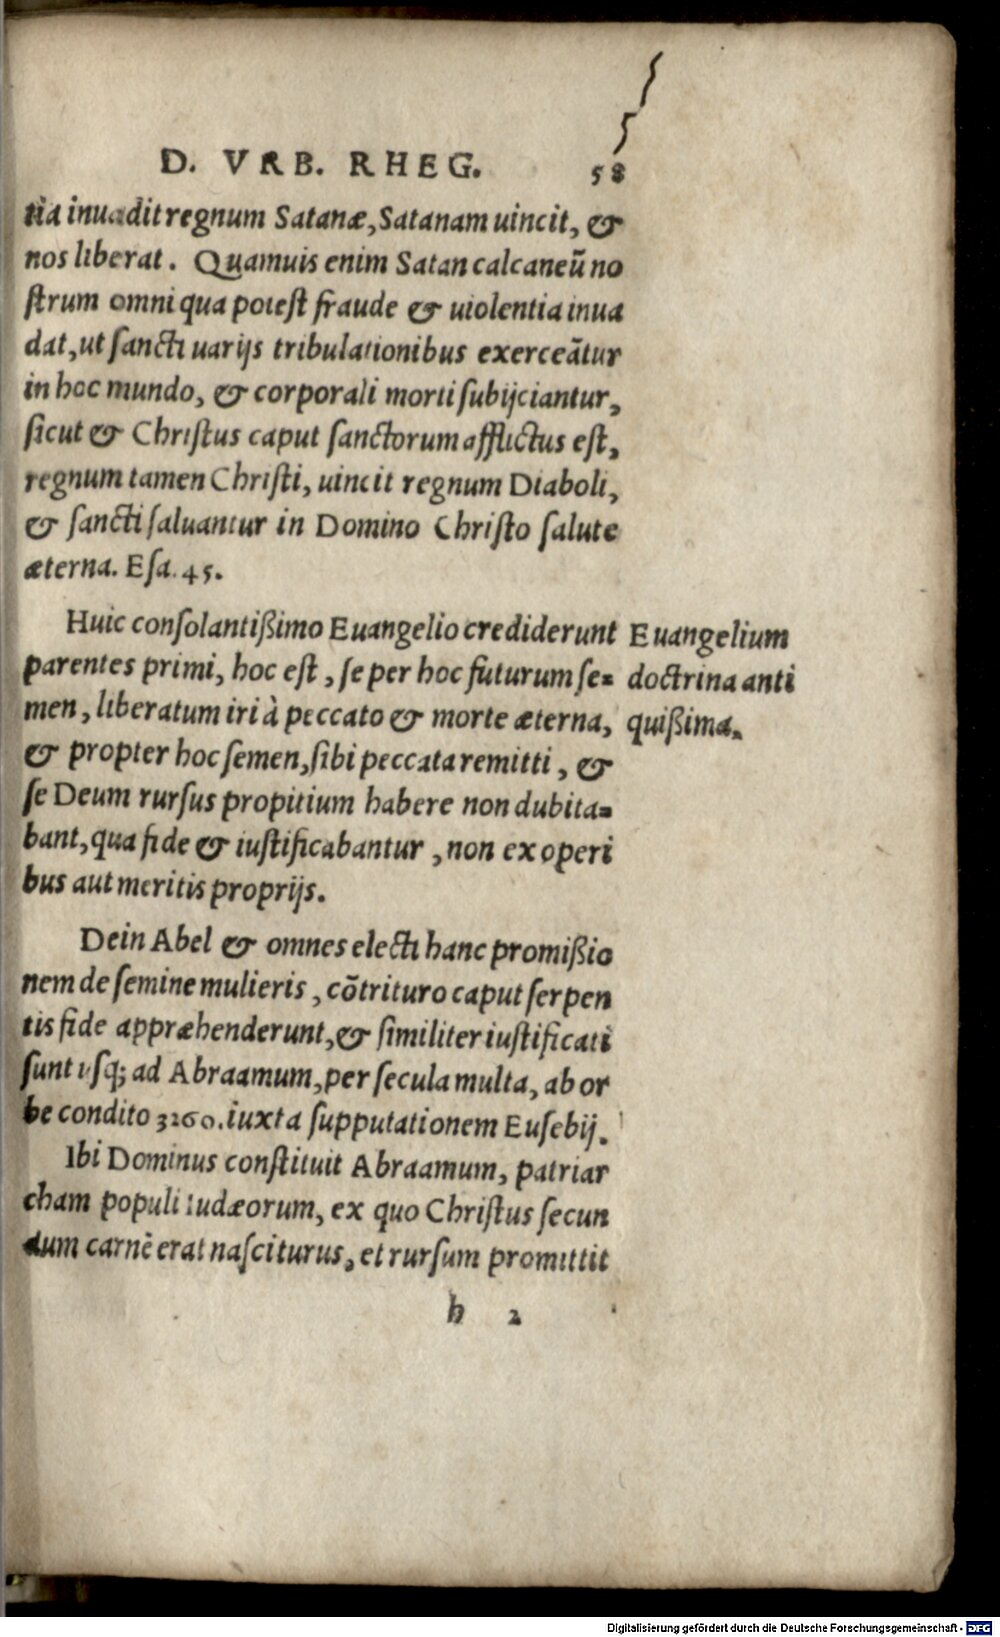 D. VRB. RHEG. 58
tia inuadit regnum Satanæ, Satanam uincit, &
nos liberat. Quamuis enim Satan calcaneũ no
ſtrum omni qua poteſt fraude & uiolentia inua
dat, ut ſancti uarijs tribulationibus exerceãtur
in hoc mundo, & corporali morti ſubijciantur,
ſicut & Chriſtus caput ſanctorum afflictus eſt,
regnum tamen Chriſti, uincit regnum Diaboli,
& ſancti ſaluantur in Domino Chriſto ſalute
æterna. Eſa. 45.
Huic conſolantißimo Euangelio crediderunt
parentes primi, hoc eſt, ſe per hoc futurum ſe=
men, liberatum iri à peccato & morte æterna,
& propter hoc ſemen, ſibi peccata remitti, &
ſe Deum rurſus propitium habere non dubita=
bant, qua fide & iuſtificabantur, non ex operi
bus aut meritis proprijs.
Euangelium
doctrina anti
quißima.
Dein Abel & omnes electi hanc promißio
nem de ſemine mulieris, cõtrituro caput ſerpen
tis fide appræhenderunt, & ſimiliter iuſtificati
ſunt uſq; ad Abraamum, per ſecula multa, ab or
be condito 3260. iuxta ſupputationem Euſebij.
Ibi Dominus conſtituit Abraamum, patriar
cham populi Iudæorum, ex quo Chriſtus ſecun
dum carnẽ erat naſciturus, et rurſum promittit
h 2
Digitalisierung gefördert durch die Deutsche Forschungsgemeinschaft - DFG